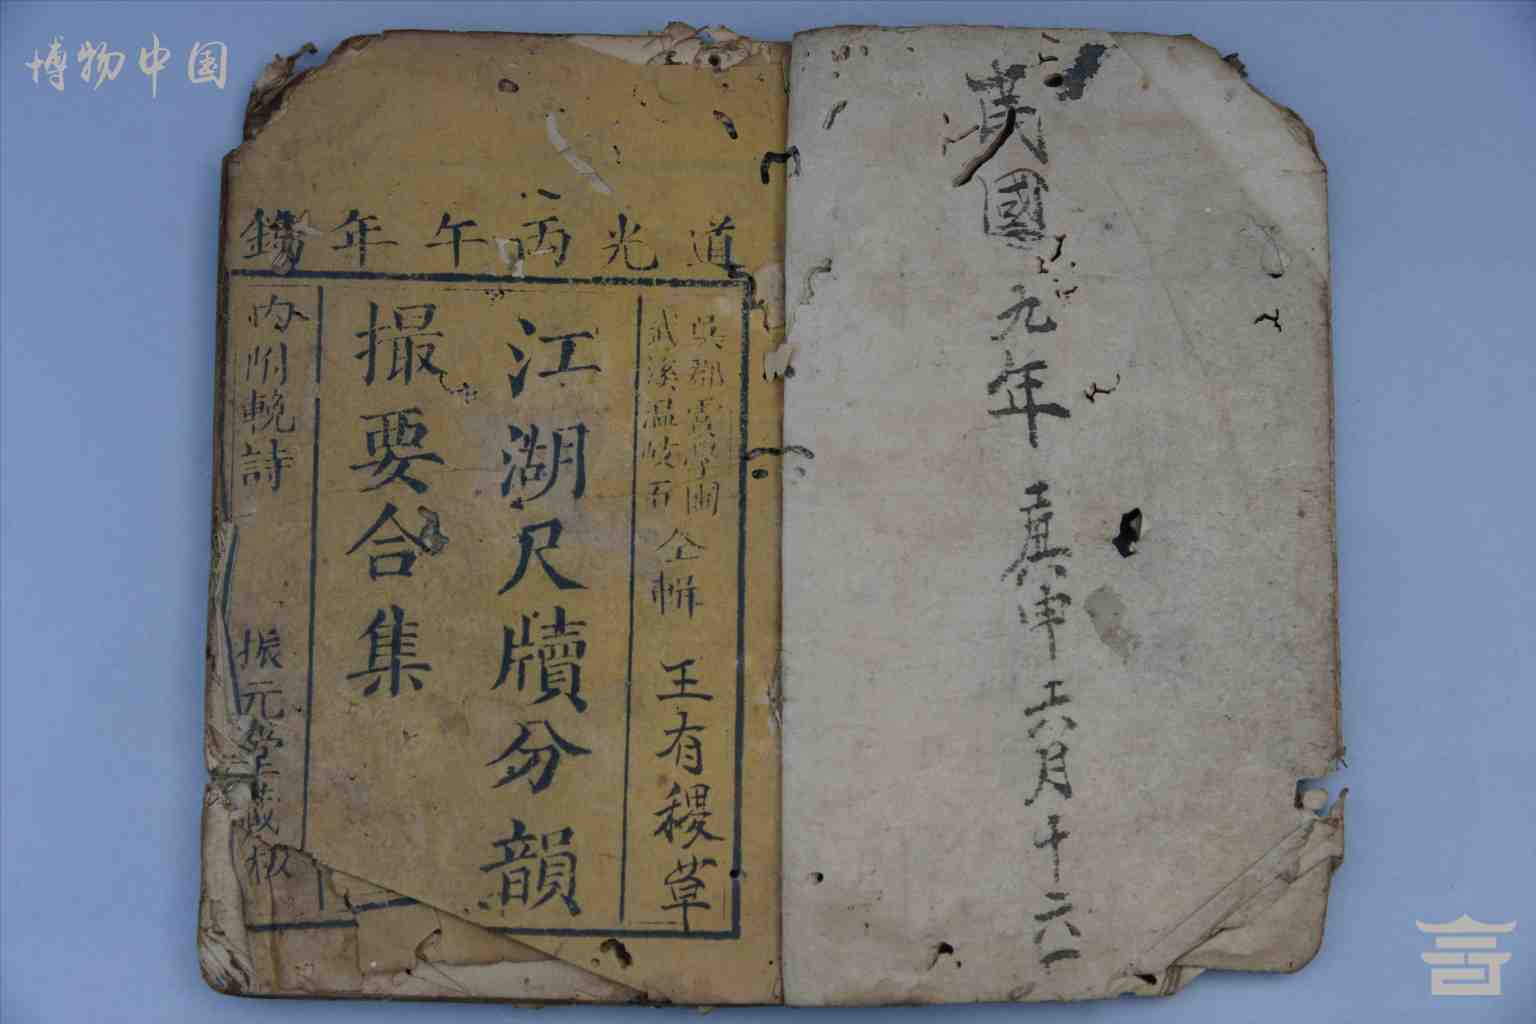 博物中国
道光丙午年鐫
吳郡虞學圃
武溪温岐石
仝輯 王有稷草
江湖尺牘分韻
撮要合集
内附輓詩 振元堂藏板
國九年 庚申 六月十六